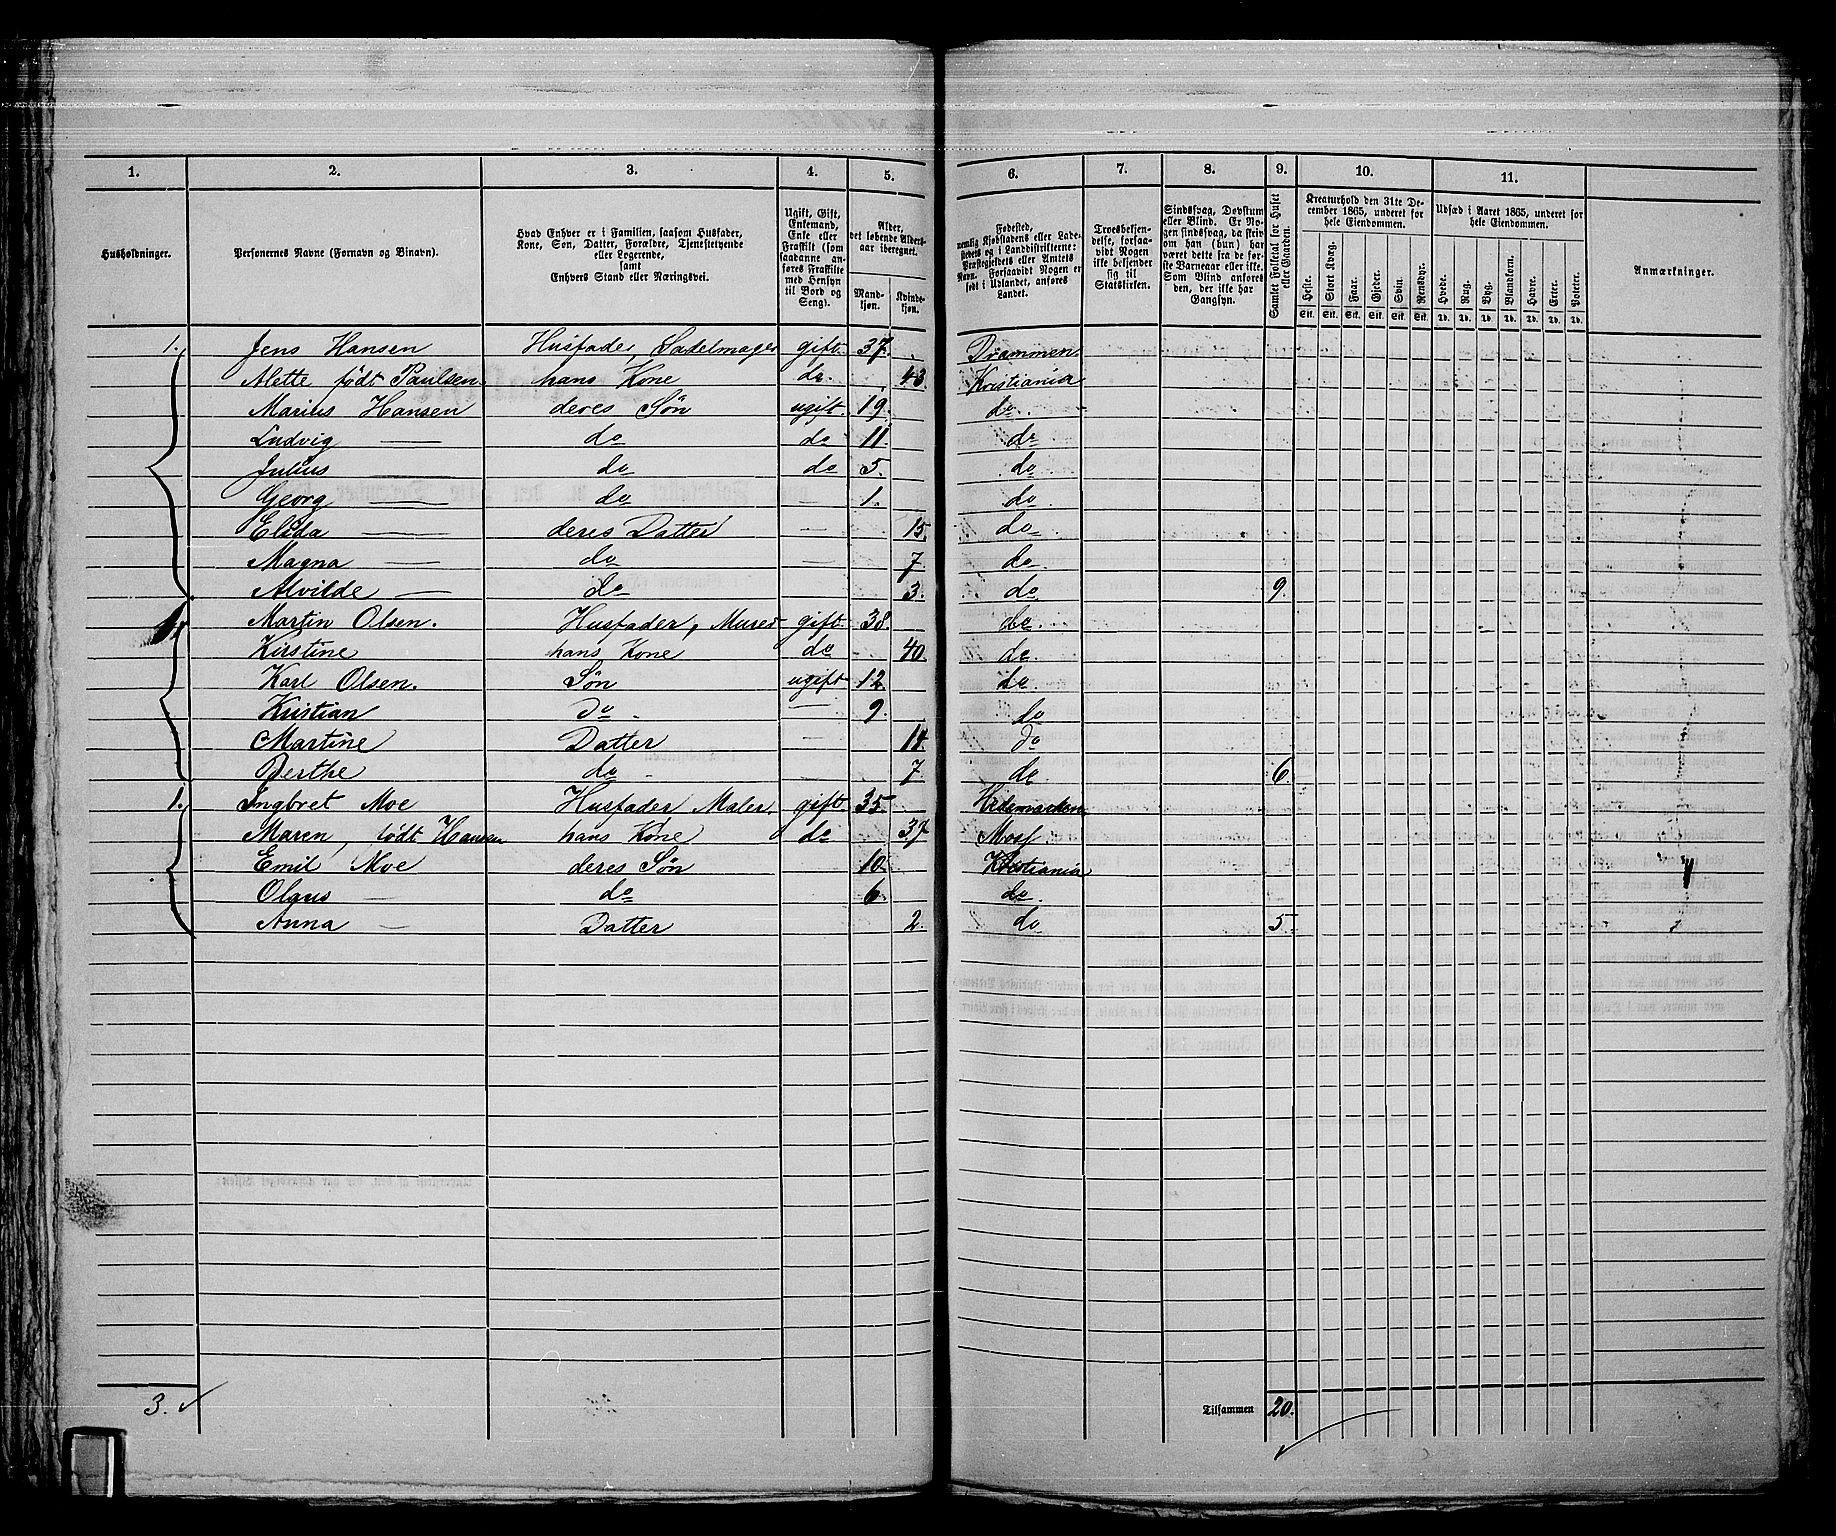 1. 2. 3. 4. 5. 6. 7. 8. 9. 10. 11.
Husholdninger.
Personernes Navne (Fornavn og Binavn).
Hvad Enhver er i Familien, saasom Husfader,
Kone, Søn, Datter, Forældre, Tjenestetyende
eller Logerende,
samt
Enhvers Stand eller Næringsvei.
Ugift, Gift,
Enkemand,
Enke eller
Fraskilt (som
saadanne an-
føres Fraskilte
med Hensyn
til Bord og
Seng).
Alder,
det løbende Alders-
aar iberegnet.
Mand-
kjøn.
Kvinde-
kjøn.
Fødested,
nemlig Kjøbstadens eller Lade-
stedets og i Landdistrikterne:
Præstegjeldets eller Amtets
Navn. Forsaavidt Nogen er
født i Udlandet, anføres
Landet.
Troesbekjen-
delse, forsaa-
vidt Nogen
ikke bekjender
sig til
Statskirken.
Sindssvag, Døvstum
eller Blind. Er No-
gen sindssvag, da skriv
om han (hun) har
været dette fra de før-
ste Barneaar eller ikke.
Som Blind anføres
den, der ikke har
Gangsyn.
Samlet Folketal for Huset
eller Gaarden.
Kreaturhold den 31te De-
cember 1865, underet for
hele Eiendommen.
Heste. Stort Kvæg. Faar. Gjeder. Svin. Rensdyr.
Stk. Stk. Stk. Stk. Stk. Stk.
Udsæd i Aaret 1865, underet for
hele Eiendommen.
Hvede. Rug. Byg. Blandkorn. Havre. Erter. Poteter.
Td. Td. Td. Td. Td. Td. Td.
Anmærkninger.
1. Jens Hansen Husfader, Sadelmager gift 37. Drammen.
Alette født Paulsen. hans Kone do. 43. Kristiania
Marius Hansen deres Søn ugift 19. do.
Ludvig — do do 11. do
Julius — do do 5. do.
Georg — do 1. do
Elida — deres Datter — 15. do
Magna — do — 7 do
Alvilde — do 3. do 9
1. Martin Olsen. Husfader, Murer gift 38. do.
Kirstine hans Kone do 40. do.
Karl Olsen. Søn ugift 12. do.
Kristian Do. — 9. do
Martine Datter — 14. do
Berthe do — 7. do. 6
1. Ingbret Moe Husfader Maler. gift 35. Hedemarken
Maren, født Hansen hans Kone do 37 Moss.
Emil Moe deres Søn 10. Kristiania
Olaus — do 6. do.
Anna — Datter 2. do 5
3. ✓
Tilsammen 20.